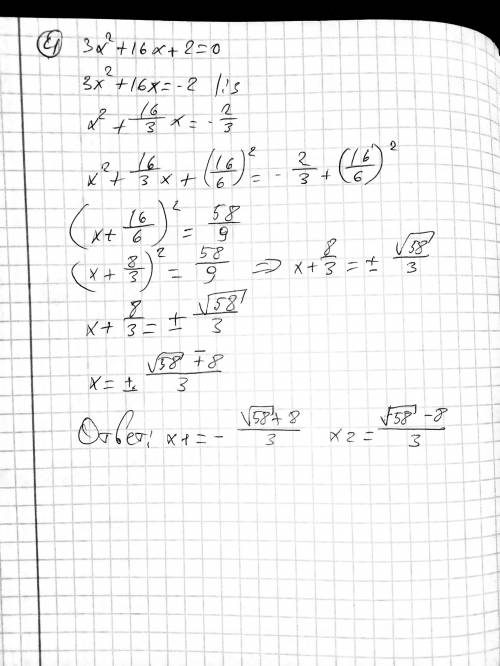 Е) 3x² + 16x + 2 = 0
3x² + 16x = -2 /:3
x² + 16/3 x = - 2/3
x² + 16/3 x + (16/6)² = - 2/3 + (16/6)²
(x + 16/6)² = 58/9
(x + 8/3)² = 58/9 => x + 8/3 = ± √58/3
x + 8/3 = ± √58/3
x = ± (√58 ∓ 8)/3
Ответ: x1 = - (√58 + 8)/3 x2 = (√58 - 8)/3